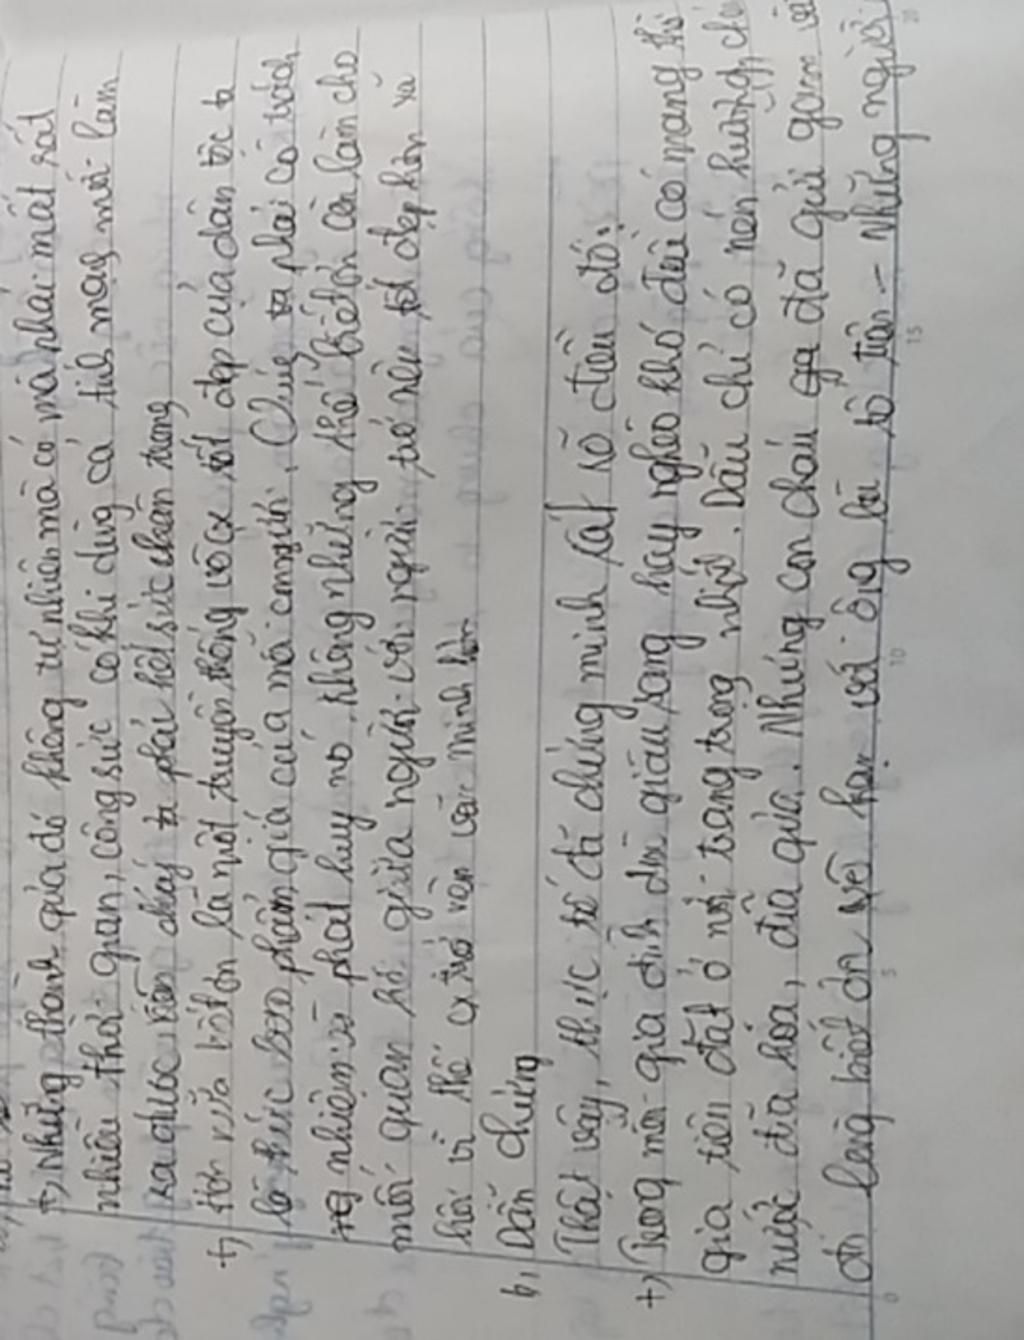 +, Những thành quả đó không tự nhiên mà có mà phải mất rất
nhiều thời gian, công sức có khi dùng cả tính mạng mới làm
ra được nên chúng ta phải hết sức trân trọng
+, Hơn nữa biết ơn là một truyền thống vô cx tốt đẹp của dân tộc ta
là thức đo phẩm giá của mỗi con người. Chúng ta phải có trách
nhiệm và phát huy nó không những thế biết ơn còn làm cho
mối quan hệ giữa người với người trở nên tốt đẹp hơn xã
hội vì thế cx trở nên văn minh hơn
b, Dẫn chứng
Thật vậy, thực tế đã chứng minh rất rõ điều đó:
+, Trong mỗi gia đình dù giàu sang hay nghèo khó đều có mang thờ
gia tiên đặt ở nơi trang trọng nhất. Dẫu chỉ có nén hương, ché
nước đĩa hoa, đĩa quả. Những con cháu đã gửi gắm
ơn lòng biết ơn vô hạn với ông bà tổ tiên - Những người